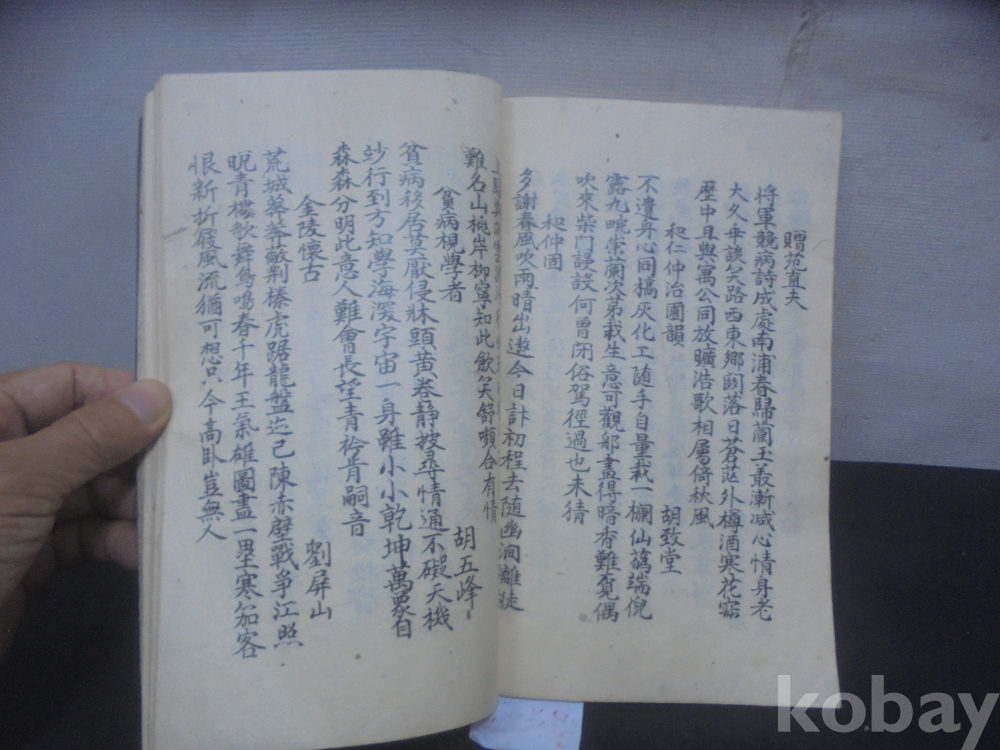 贈范直夫
將軍競病詩成處南浦春歸蘭玉叢漸減心情身老
大久垂談笑路西東鄉關落日蒼茫外樽酒寒花寂
歷中且與寓公同放曠浩歌相屬倚秋風
和仁仲治圃韻
胡致堂
不遣身心同槁灰化工随手自量栽一欄仙蕚端倪
露九畹崇蘭次第栽生意可觀那畵得暗香難覓偶
吹來柴門謾設何曾閉俗駕徑過也未猜
和仲固
多謝春風吹兩晴出遨今日計初程去随幽澗離
難名山桃岸柳寧知此飲笑舒嚬合有情
胡五峰
貧病梘學者
貧病移居莫厭侵牀頭黄卷静披尋情通不礙天機
玅行到方知學海深宇宙一身雖小小乾坤萬象自
森森分明此意人難會長望青衿肯嗣音
劉屏山
金陵懷古
荒城莽莽蔽荆榛虎踞龍盤迹已陳赤壁戰爭江照
眼青樓歌舞鳥鳴春千年王氣雄圖盡一壘寒笳客
恨新折屐風流猶可想只今高卧豈無人
kobay